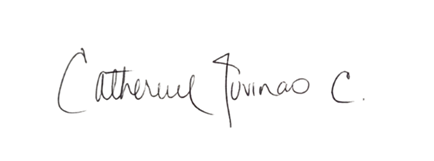 Catherine Juvinao C.